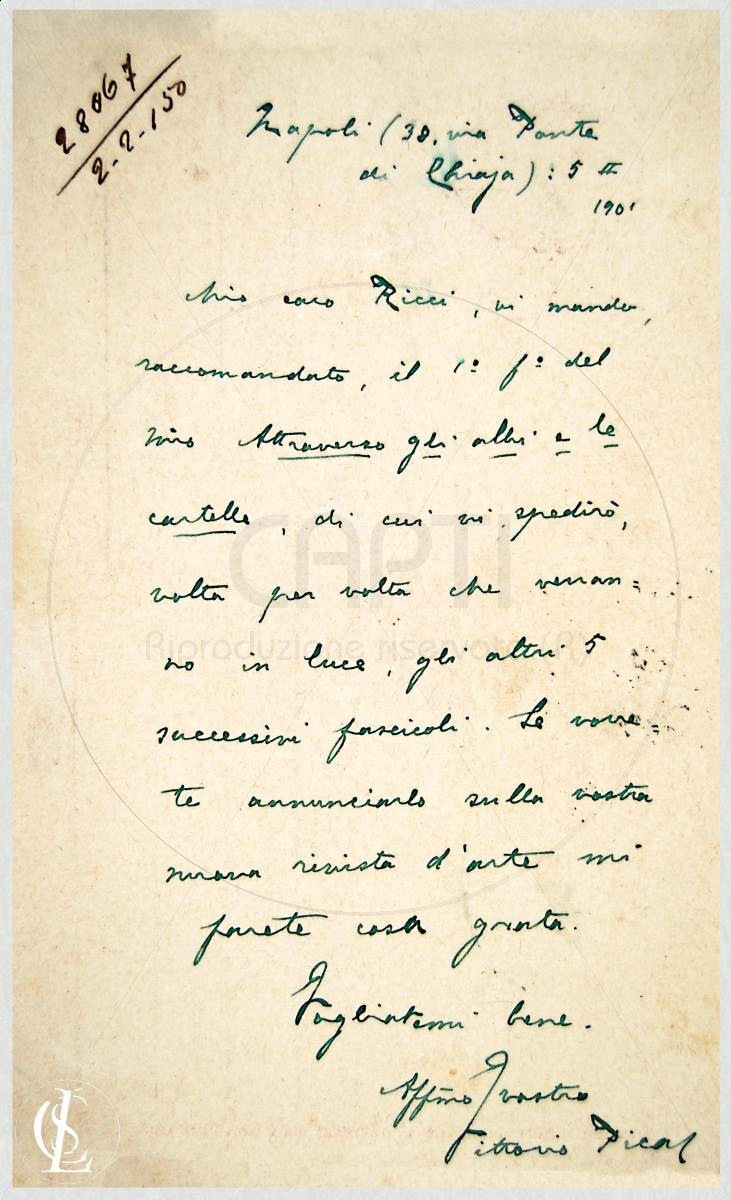 28067
2-2-150
Napoli (38, via Ponte
di Chiaja): 5 II
1901
Mio caro Ricci, vi mando,
raccomandato, il 1º fº del
mio Attraverso gli albi e le
cartelle, di cui vi spedirò,
volta per volta che verran=
no in luce, gli altri 5
successivi fascicoli. Se vorre=
te annunciarlo sulla vostra
nuova rivista d'arte mi
farete cosa grata.
Vogliatemi bene.
Affmo vostro
Vittorio Pica
CAPTI
Riproduzione riservata (R)